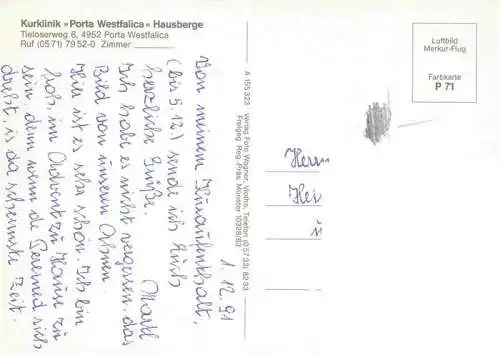 Kurklinik »Porta Westfalica« Hausberge
Tieloserweg 6, 4952 Porta Westfalica
Ruf (05 71) 79 52-0 Zimmer
1.12.91
Von meinem Kuraufenthalt,
(bis 5.12.) sende ich Euch
herzliche Grüße. Markl
Ich habe es nicht vergessen, das
Bild von unseren Ahnen.
Hier ist es sehr schön. Ich bin
froh, im Advent zu Hause zu
sein, denn wenn de Peremed sich
dreht, is da schennste Zeit.
A 155 323 Verlag Foto Wagner, Vlotho, Telefon (0 57 33) 82 33
Freigeg. Reg.-Präs. Münster 10328/83
Luftbild
Merkur-Flug
Farbkarte
P 71
Herrn
Hei